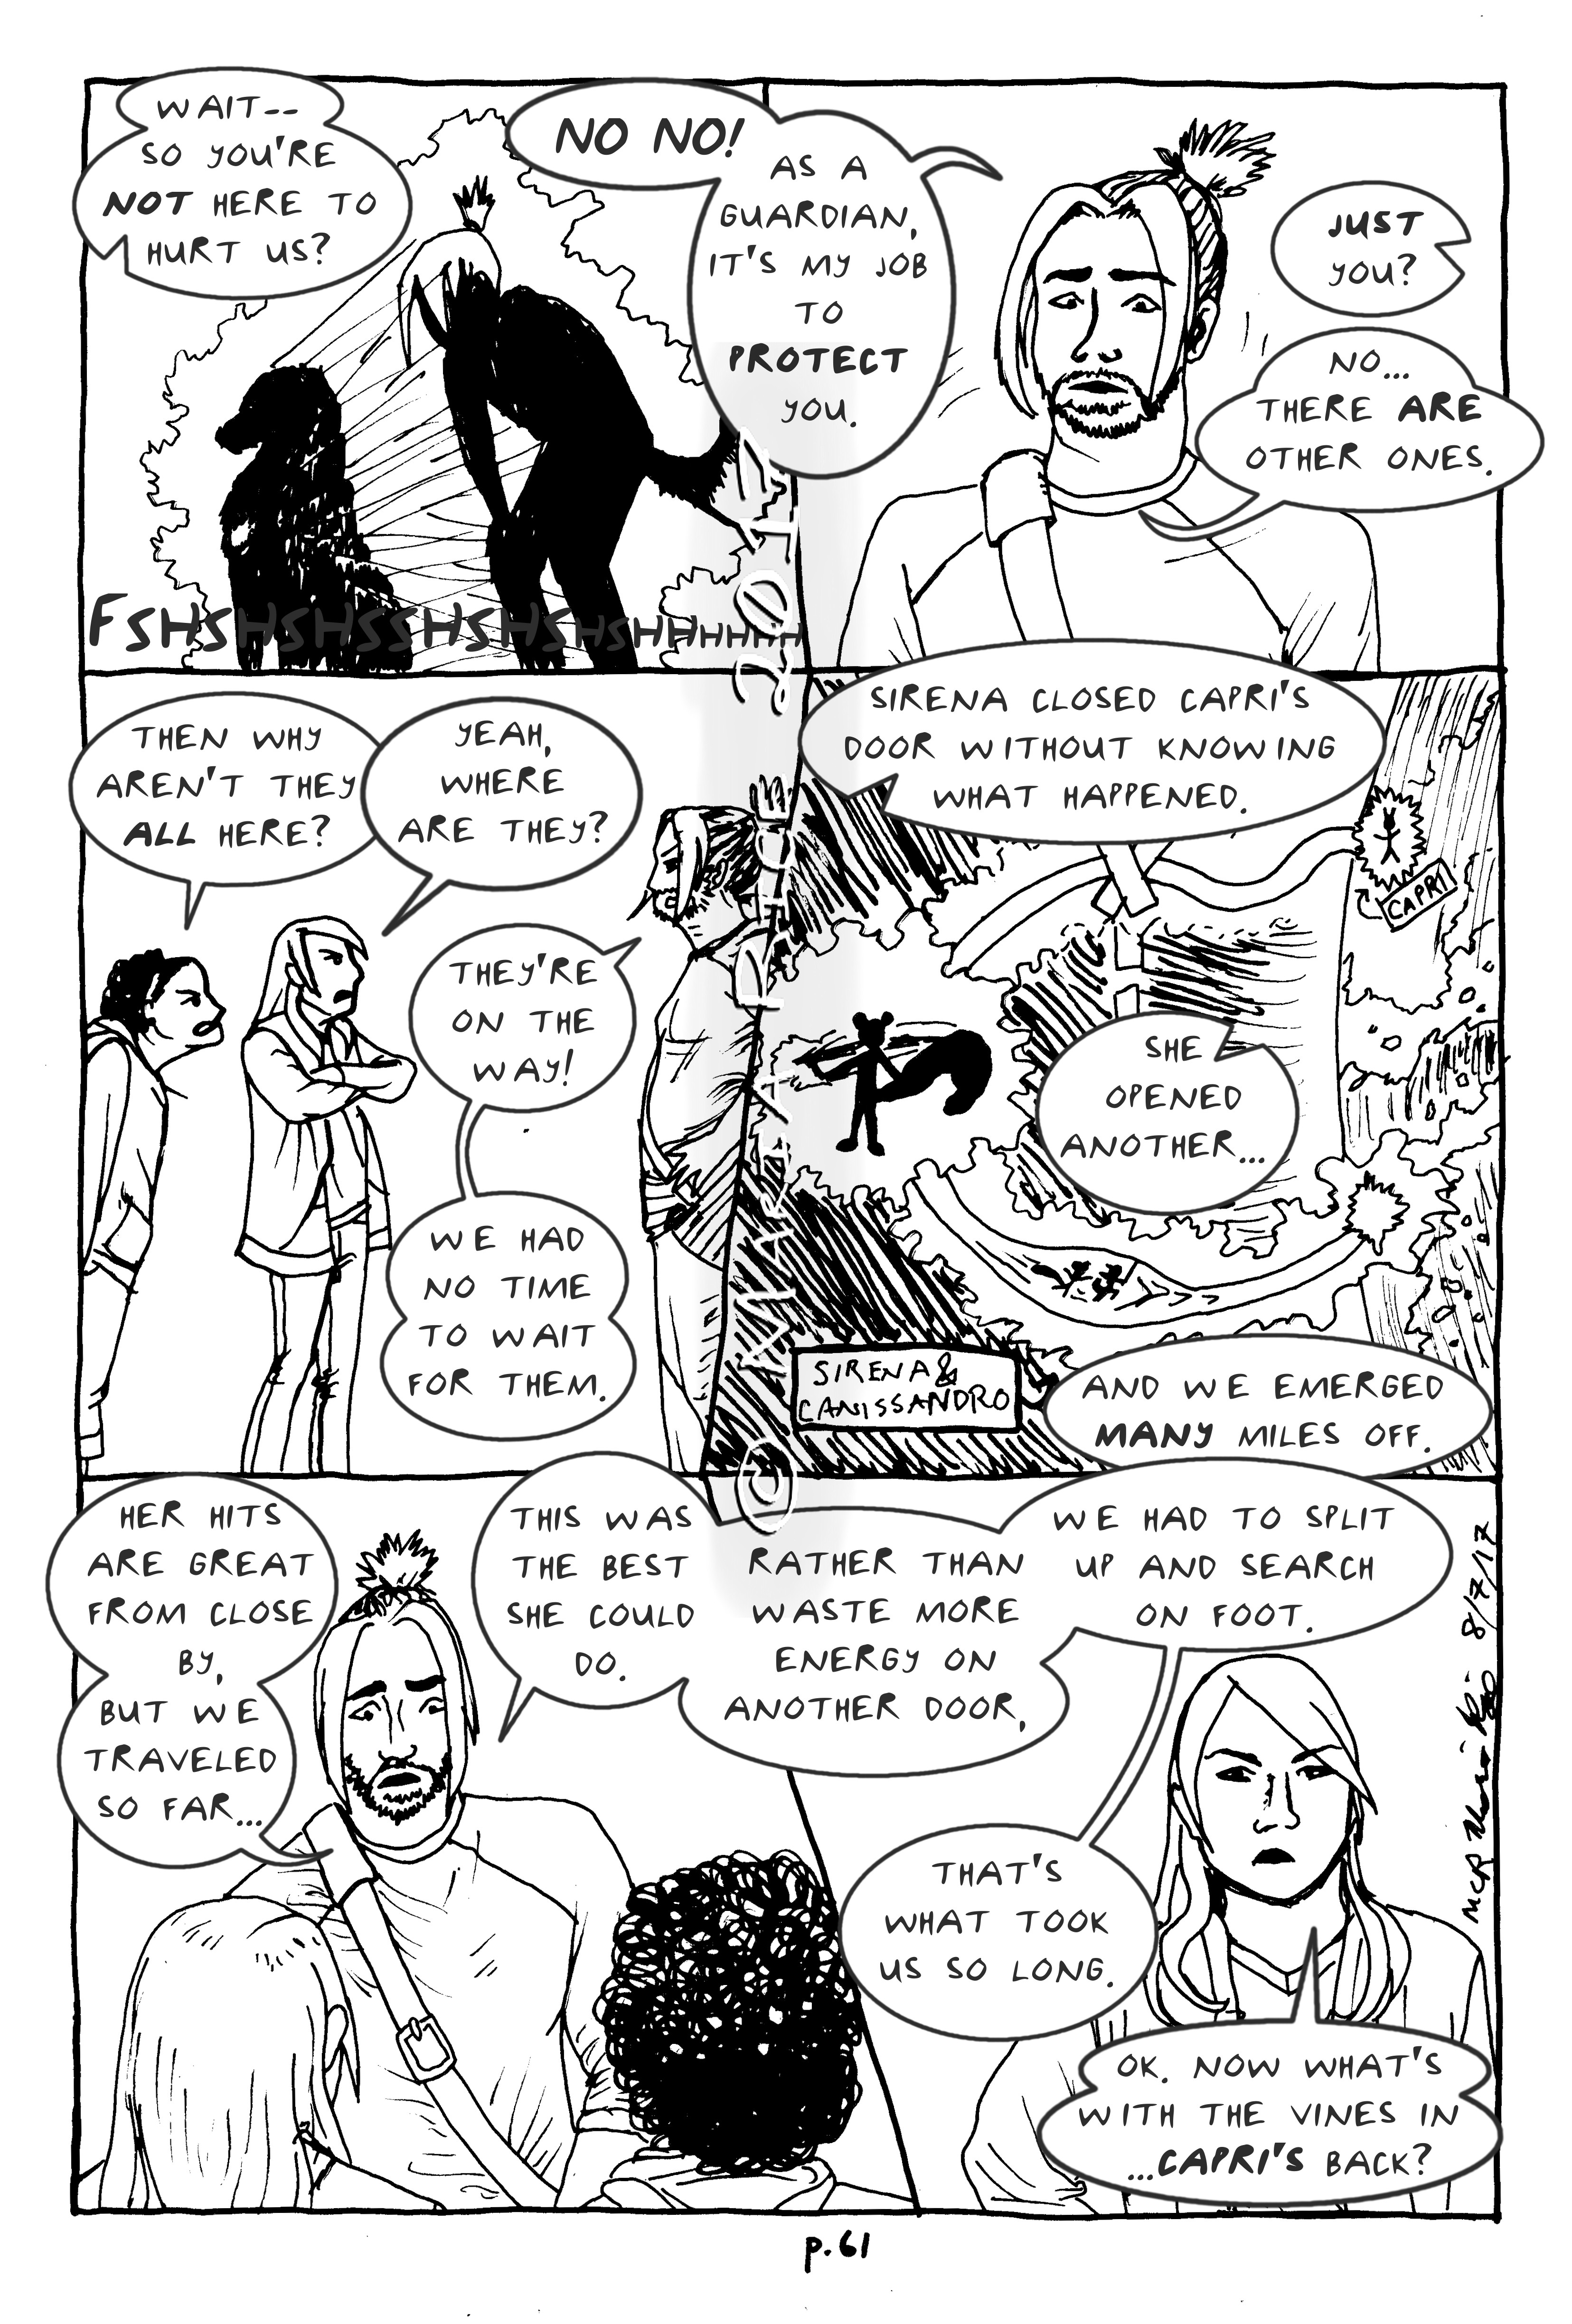 WAIT--
SO YOU'RE
NOT HERE TO
HURT US?
NO NO!
AS A
GUARDIAN,
IT'S MY JOB
TO
PROTECT
YOU.
JUST
YOU?
NO...
THERE ARE
OTHER ONES.
FSHSHSHSSHSHSHSHHHHHH
THEN WHY
AREN'T THEY
ALL HERE?
YEAH,
WHERE
ARE THEY?
THEY'RE
ON THE
WAY!
WE HAD
NO TIME
TO WAIT
FOR THEM.
SIRENA CLOSED CAPRI'S
DOOR WITHOUT KNOWING
WHAT HAPPENED.
CAPRI
SHE
OPENED
ANOTHER...
SIRENA &
CANISSANDRO
AND WE EMERGED
MANY MILES OFF.
HER HITS
ARE GREAT
FROM CLOSE
BY,
BUT WE
TRAVELED
SO FAR...
THIS WAS
THE BEST
SHE COULD
DO.
RATHER THAN
WASTE MORE
ENERGY ON
ANOTHER DOOR,
WE HAD TO SPLIT
UP AND SEARCH
ON FOOT.
THAT'S
WHAT TOOK
US SO LONG.
OK. NOW WHAT'S
WITH THE VINES IN
...CAPRI'S BACK?
8/7/17
p.61